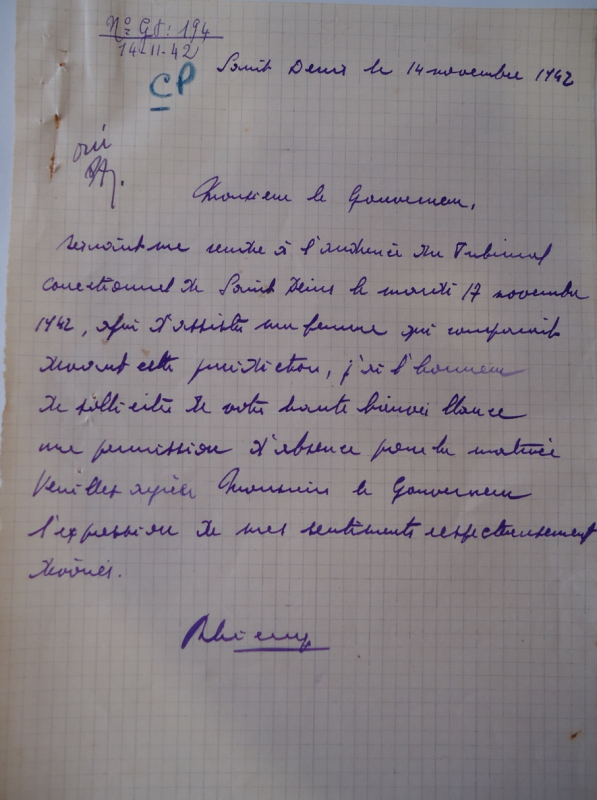 N° Gt: 194
14-11-42
CP
Saint Denis le 14 novembre 1942
oui
Monsieur le Gouverneur,
devant me rendre à l'audience du Tribunal
correctionnel de Saint Denis le mardi 17 novembre
1942, afin d'assister ma femme qui comparait
devant cette juridiction, j'ai l'honneur
de solliciter de votre haute bienveillance
une permission d'absence pour la matinée
Veuillez agréer Monsieur le Gouverneur
l'expression de mes sentiments respectueusement
dévoués.